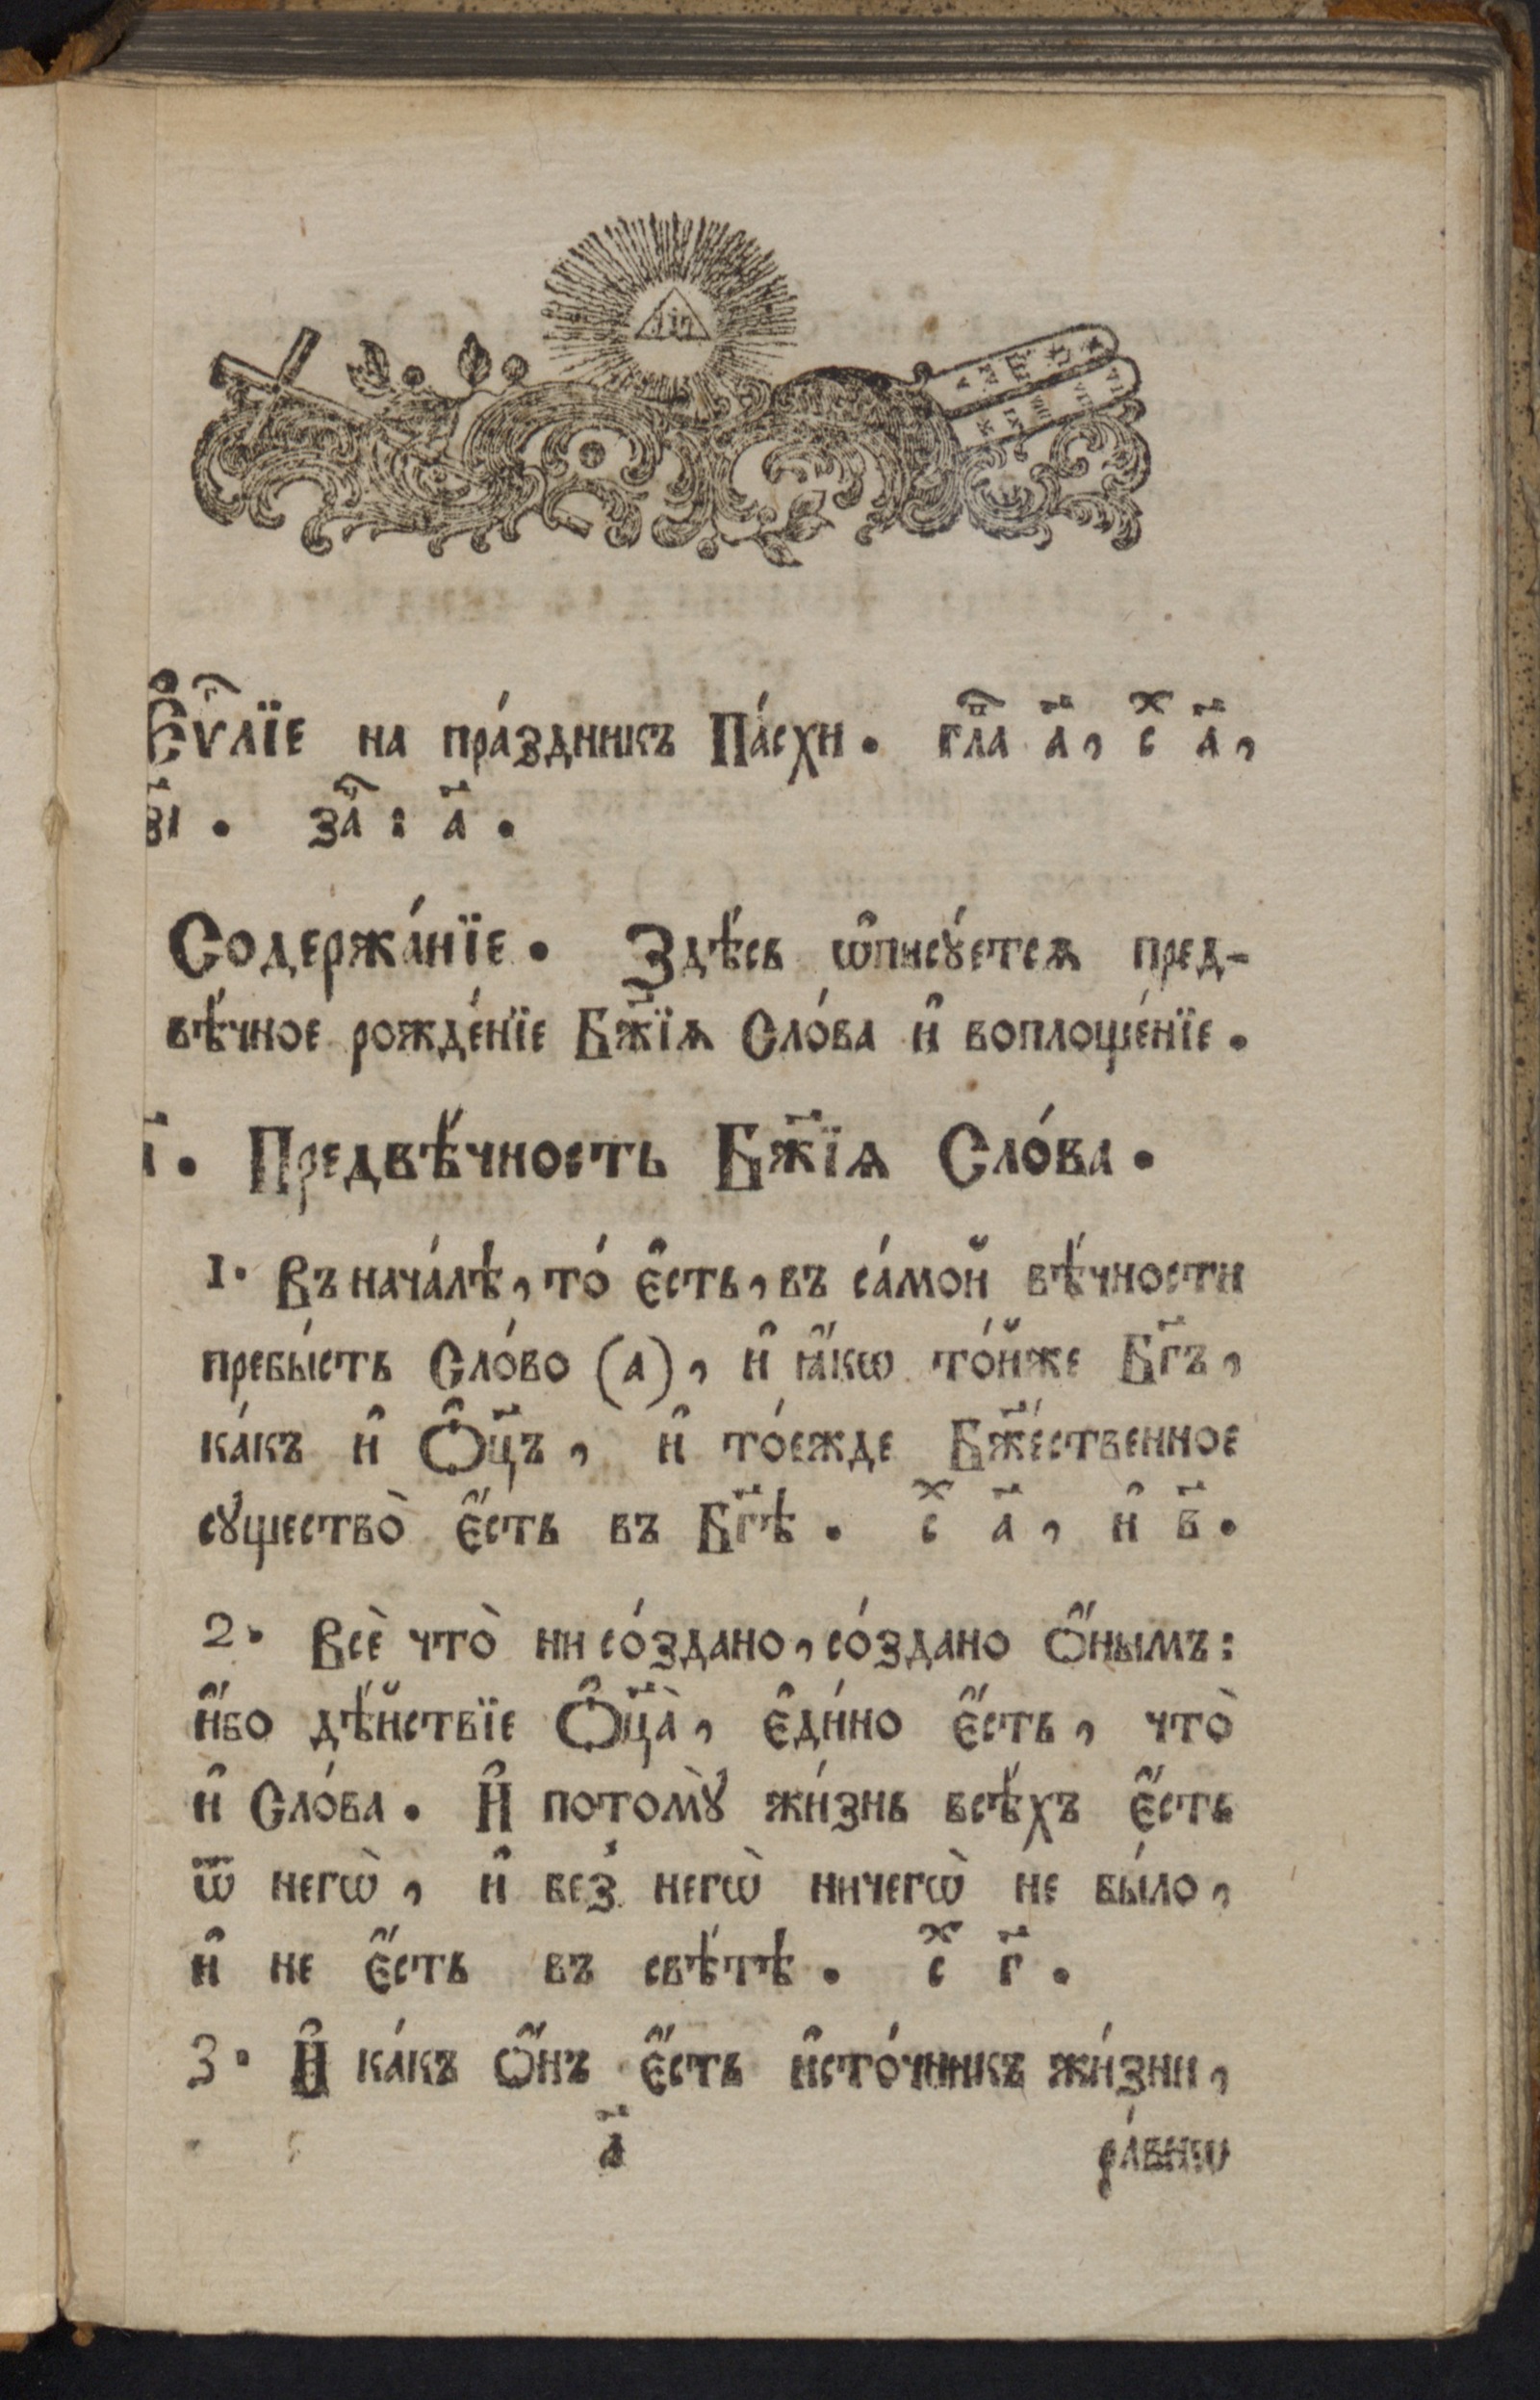 Є҆ѵⷢ҇лїе на пра́здникъ Па́схи. гла҃ва а҃, сⷯ а҃,
з҃і. заⷱ҇: а҃.
Содержа́нїе. Здѣ́сь ѡ҆писꙋ́етсѧ пред-
вѣ́чное рожде́нїе Бж҃їѧ Сло́ва и҆ воплоще́нїе.
а҃. Предвѣ́чность Бж҃їѧ Сло́ва.
1. Въ нача́лѣ, то́ є҆сть, въ са́мой вѣ́чности
пребы́сть Сло́во (а), и҆ ꙗ҆́кѡ то́йже Бг҃ъ,
ка́къ и҆ Ѻ҆ц҃ъ, и҆ то́ежде Бж҃е́ственное
сꙋщество̀ є҆́сть въ Бг҃ѣ. сⷯ а҃, и҆ в҃.
2. Всѐ что̀ ни со́здано, со́здано ѻ҆́нымъ:
и҆́бо дѣ́йствїе Ѻ҆ц҃а̀, є҆ди́но є҆́сть, что̀
и҆ Сло́ва. И҆ потомꙋ̀ жи́знь всѣ́хъ є҆́сть
ѿ негѡ̀, и҆ без̾ негѡ̀ ничегѡ̀ не бы́ло,
и҆ не є҆́сть въ свѣ́тѣ. сⷯ г҃.
3. И҆ ка́къ ѻ҆́нъ є҆́сть и҆сто́чникъ жи́зни,
а҃ ра́внѡ